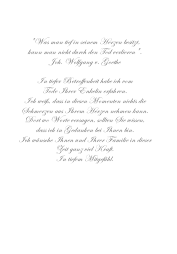 "Was man tief in seinem Herzen besitzt,
kann man nicht durch den Tod verlieren."
Joh. Wolfgang v. Goethe
In tiefer Betroffenheit habe ich vom
Tode Ihrer Enkelin erfahren.
Ich weiß, dass in diesen Momenten nichts die
Schmerzen aus Ihrem Herzen nehmen kann.
Dort wo Worte versagen, sollten Sie wissen,
dass ich in Gedanken bei Ihnen bin.
Ich wünsche Ihnen und Ihrer Familie in dieser
Zeit ganz viel Kraft.
In tiefem Mitgefühl.